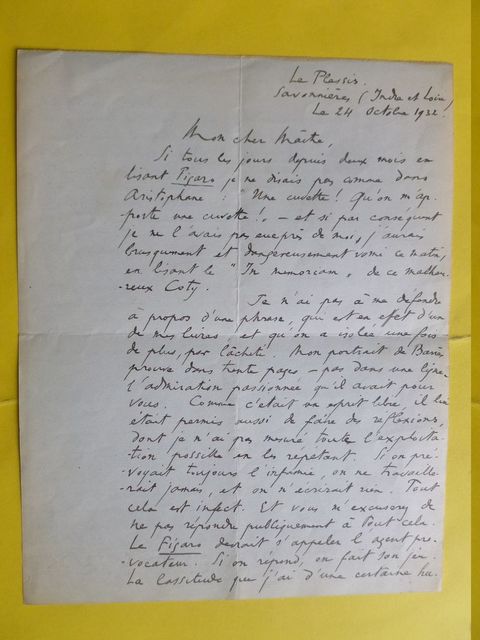 Le Plessis.
Savonnières (Indre et Loire)
Le 24 Octobre 1932.
Mon cher Maître,
Si tous les jours depuis deux mois en
lisant Figaro je ne disais pas comme dans
Aristophane : "Une cuvette ! Qu'on m'ap-
-porte une cuvette !, - et si par conséquent
je ne l'avais pas eue près de moi, j'aurais
brusquement et dangereusement vomi ce matin,
en lisant le "In memoriam, de ce malheu-
-reux Coty.
Je n'ai pas à me défendre
à propos d'une phrase, qui est en effet d'un
de mes livres, et qu'on a isolée une fois
de plus, par lâcheté. Mon portrait de Barrès
prouve dans trente pages - pas dans une ligne -
l'admiration passionnée qu'il avait pour
vous. Comme c'était un esprit libre il lui
était permis aussi de faire des réflexions,
dont je n'ai pas mesuré toute l'exploita-
tion possible en les répétant. Si on pré-
-voyait toujours l'infamie, on ne travaille-
-rait jamais, et on n'écrirait rien. Tout
cela est infect. Et vous m'excuserez de
ne pas répondre publiquement à tout cela.
Le Figaro devrait s'appeler l'agent pro-
-vocateur. Si on répond, on fait son jeu.
La lassitude que j'ai d'une certaine hu-